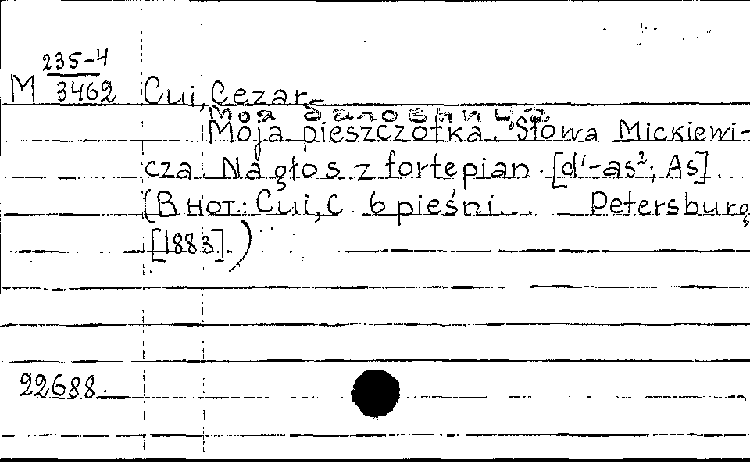 M 235-4
3462
Cui, Cezar.
Моя баловница
Moja pieszczotka. Słowa Mickiewi-
cza. Na głos z fortepian. [d¹-as²; As]
(В нот.: Cui, C. 6 pieśni. Petersburg,
[1883].)
22688